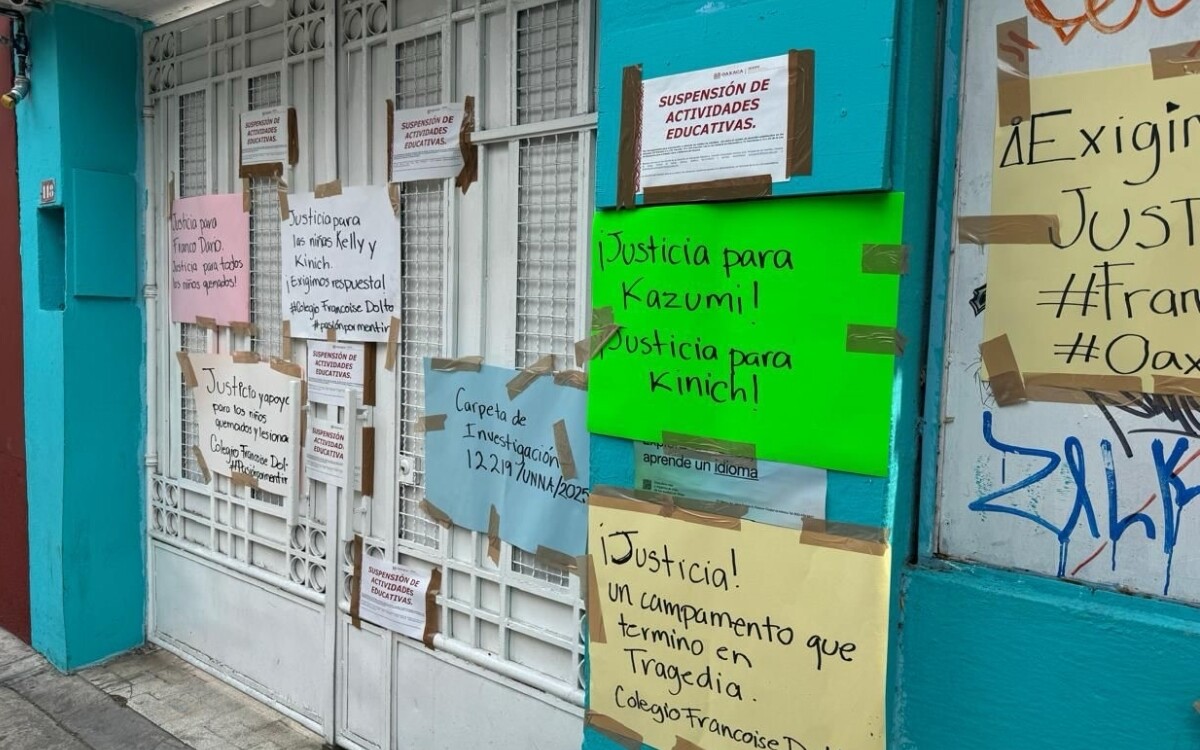 118
SUSPENSIÓN DE
ACTIVIDADES
EDUCATIVAS.
Justicia para
Franco Dano.
Justicia para todos
los niños quemados!
Justicia para
las niñas Kelly y
Kinich.
¡Exigimos respuesta!
#Colegio Francoise Dolto
#pasiónpormentir
SUSPENSIÓN DE
ACTIVIDADES
EDUCATIVAS.
Justicia y apoyo
para los niños
quemados y lesiona
Colegio Francoise Dol-
#Pasiónpormentir
SUSPENSIÓN DE
ACTIVIDADES
EDUCATIVAS.
SUSPENSIÓN DE
ACTIVIDADES
EDUCATIVAS.
SUSPENSIÓN DE
ACTIVIDADES
EDUCATIVAS.
Carpeta de
Investigación
12219/UNNA/2025
OAXACA
SUSPENSIÓN DE
ACTIVIDADES
EDUCATIVAS.
¡Justicia para
Kazumi!
Justicia para
Kinich!
aprende un idioma
¡Justicia!
un campamento que
termino en
Tragedia.
Colegio Francoise Do
¡Exigim
JUST
#Fran
#Oax